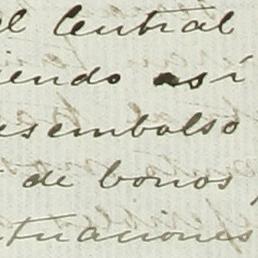 el Central
iendo así
esembolso
de bonos,
tuaciones